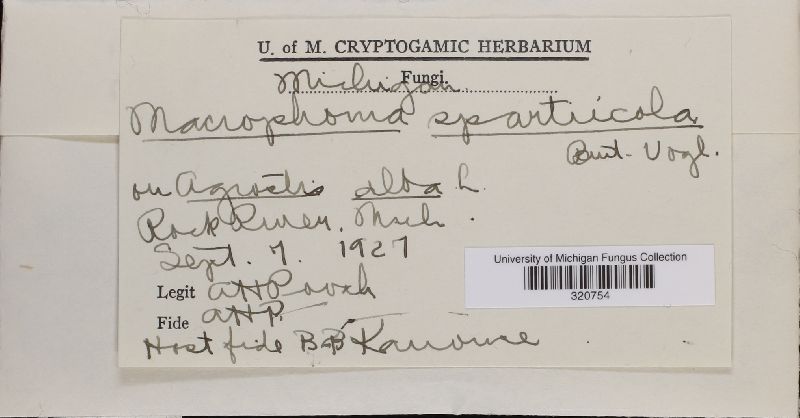 U. of M. CRYPTOGAMIC HERBARIUM
Fungi.
Michigan
Macrophoma sparticola
Burl. Vogl.
on Agrostis alba L.
Rock River, Mich.
Sept. 7. 1927
University of Michigan Fungus Collection
320754
Legit AHPovah
Fide AHP.
Host fide BB Kanouse